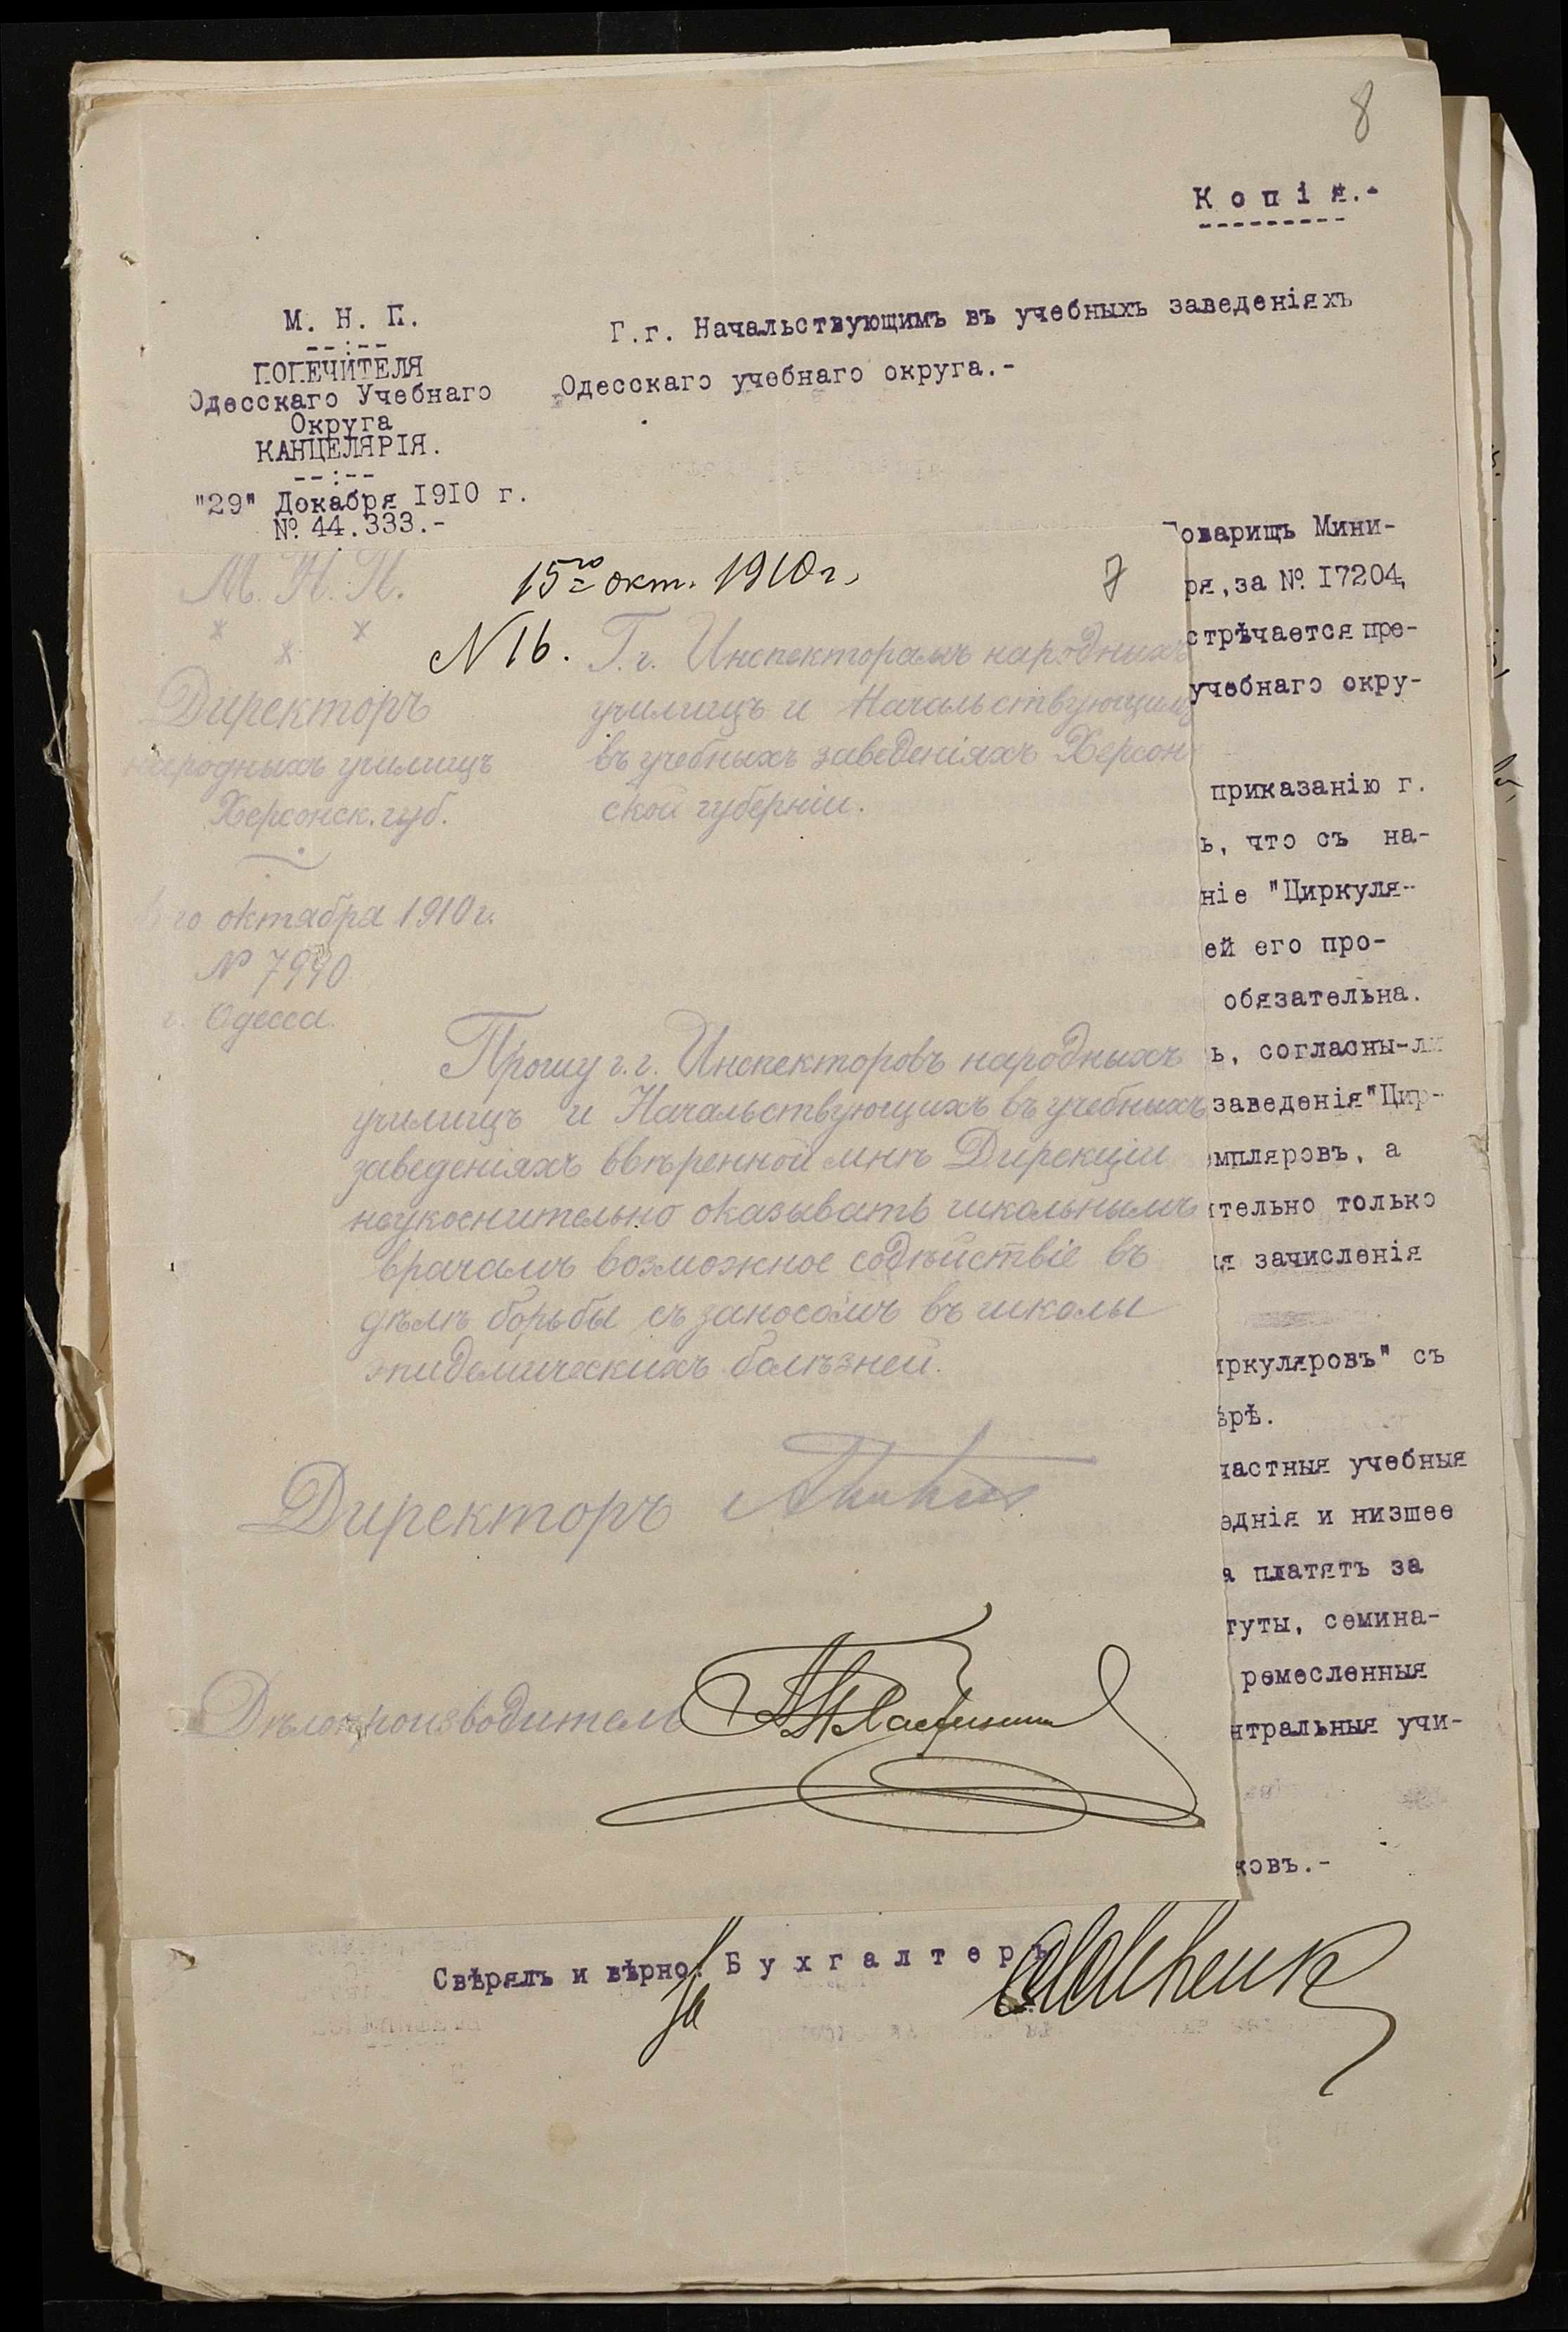 8
Копія.-
М. Н. П.
--:--
ПОПЕЧИТЕЛЯ
Одесскаго Учебнаго
Округа
КАНЦЕЛЯРІЯ.
--:--
"29" Декабря 1910 г.
№ 44.333.-
Г.г. Начальствующимъ въ учебныхъ заведеніяхъ
Одесскаго учебнаго округа.-
оварищъ Мини-
ря, за № 17204,
стрѣчается пре-
учебнаго окру-
приказанію г.
ь, что съ на-
ніе "Циркуля-
ей его про-
обязательна.
ь, согласны-ли
заведенія "Цир-
мпляровъ, а
тельно только
я зачисленія
иркуляровъ" съ
рѣ.
частныя учебныя
еднія и низшее
а платятъ за
туты, семина-
ремесленныя
нтральныя учи-
ковъ.-
15го окт. 1910 г.
7
N 16.
М. Н. П.
Директоръ
народныхъ училищъ
Херсонск. губ.
го октября 1910 г.
№ 7990
г. Одесса.
Г.г. Инспекторамъ народныхъ
училищъ и Начальствующимъ
въ учебныхъ заведеніяхъ Херсон-
ской губерніи.
Прошу г.г. Инспекторовъ народныхъ
училищъ и Начальствующихъ въ учебныхъ
заведеніяхъ ввѣренной мнѣ Дирекціи
неукоснительно оказывать школьнымъ
врачамъ возможное содѣйствіе въ
дѣлѣ борьбы съ заносомъ въ школы
эпидемическихъ болѣзней.
Директоръ
Дѣлопроизводитель
Свѣрялъ и вѣрно: За Бухгалтеръ